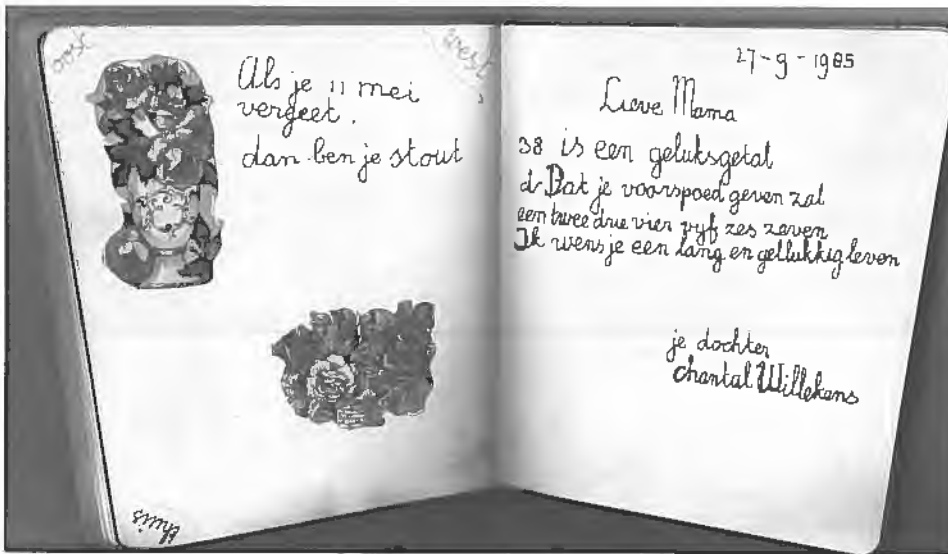 oost
west
Als je 11 mei
vergeet.
dan ben je stout
thuis
27-9-1985
Lieve Mama
38 is een geluksgetal
d Dat je voorspoed geven zal
een twee drie vier vijf zes zeven
Ik wens je een lang en gellukkig leven
je dochter
chantal Willekens